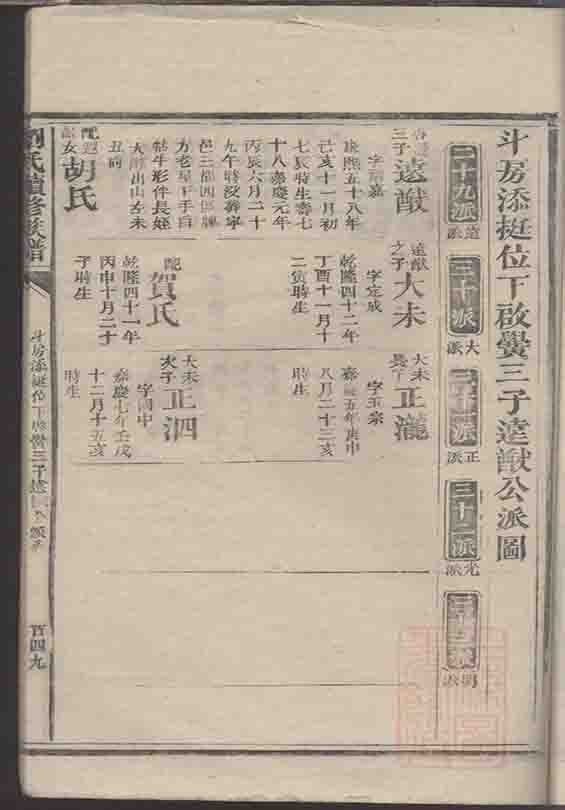 斗房添挺位下啟釁三子達猷公派圖
二十九派
達派
三十派
大派
三十一派
正派
三十二派
光派
三十三派
明派
三子
達猷
字瑞嘉
康熙五十八年
己亥十一月初
七辰時生壽七
十八嘉慶元年
丙辰六月二十
九午時沒葬寧
邑三都四區牌
方老屋下手白
牯牛形件長姪
大謝出山
丑向
配
女
胡氏
達猷
之子
大未
字定成
乾隆四十二年
丁酉十一月十
二寅時生
配
賀氏
乾隆四十一年
丙申十月二十
子時生
大未
長子
正瀧
字玉宗
嘉慶五年庚申
八月二十三亥
時生
大未
次子
正泗
字國中
嘉慶七年壬戌
十二月十五亥
時生
劉氏續修族譜
斗房添挺位下啟釁三子達猷公派系
百四九